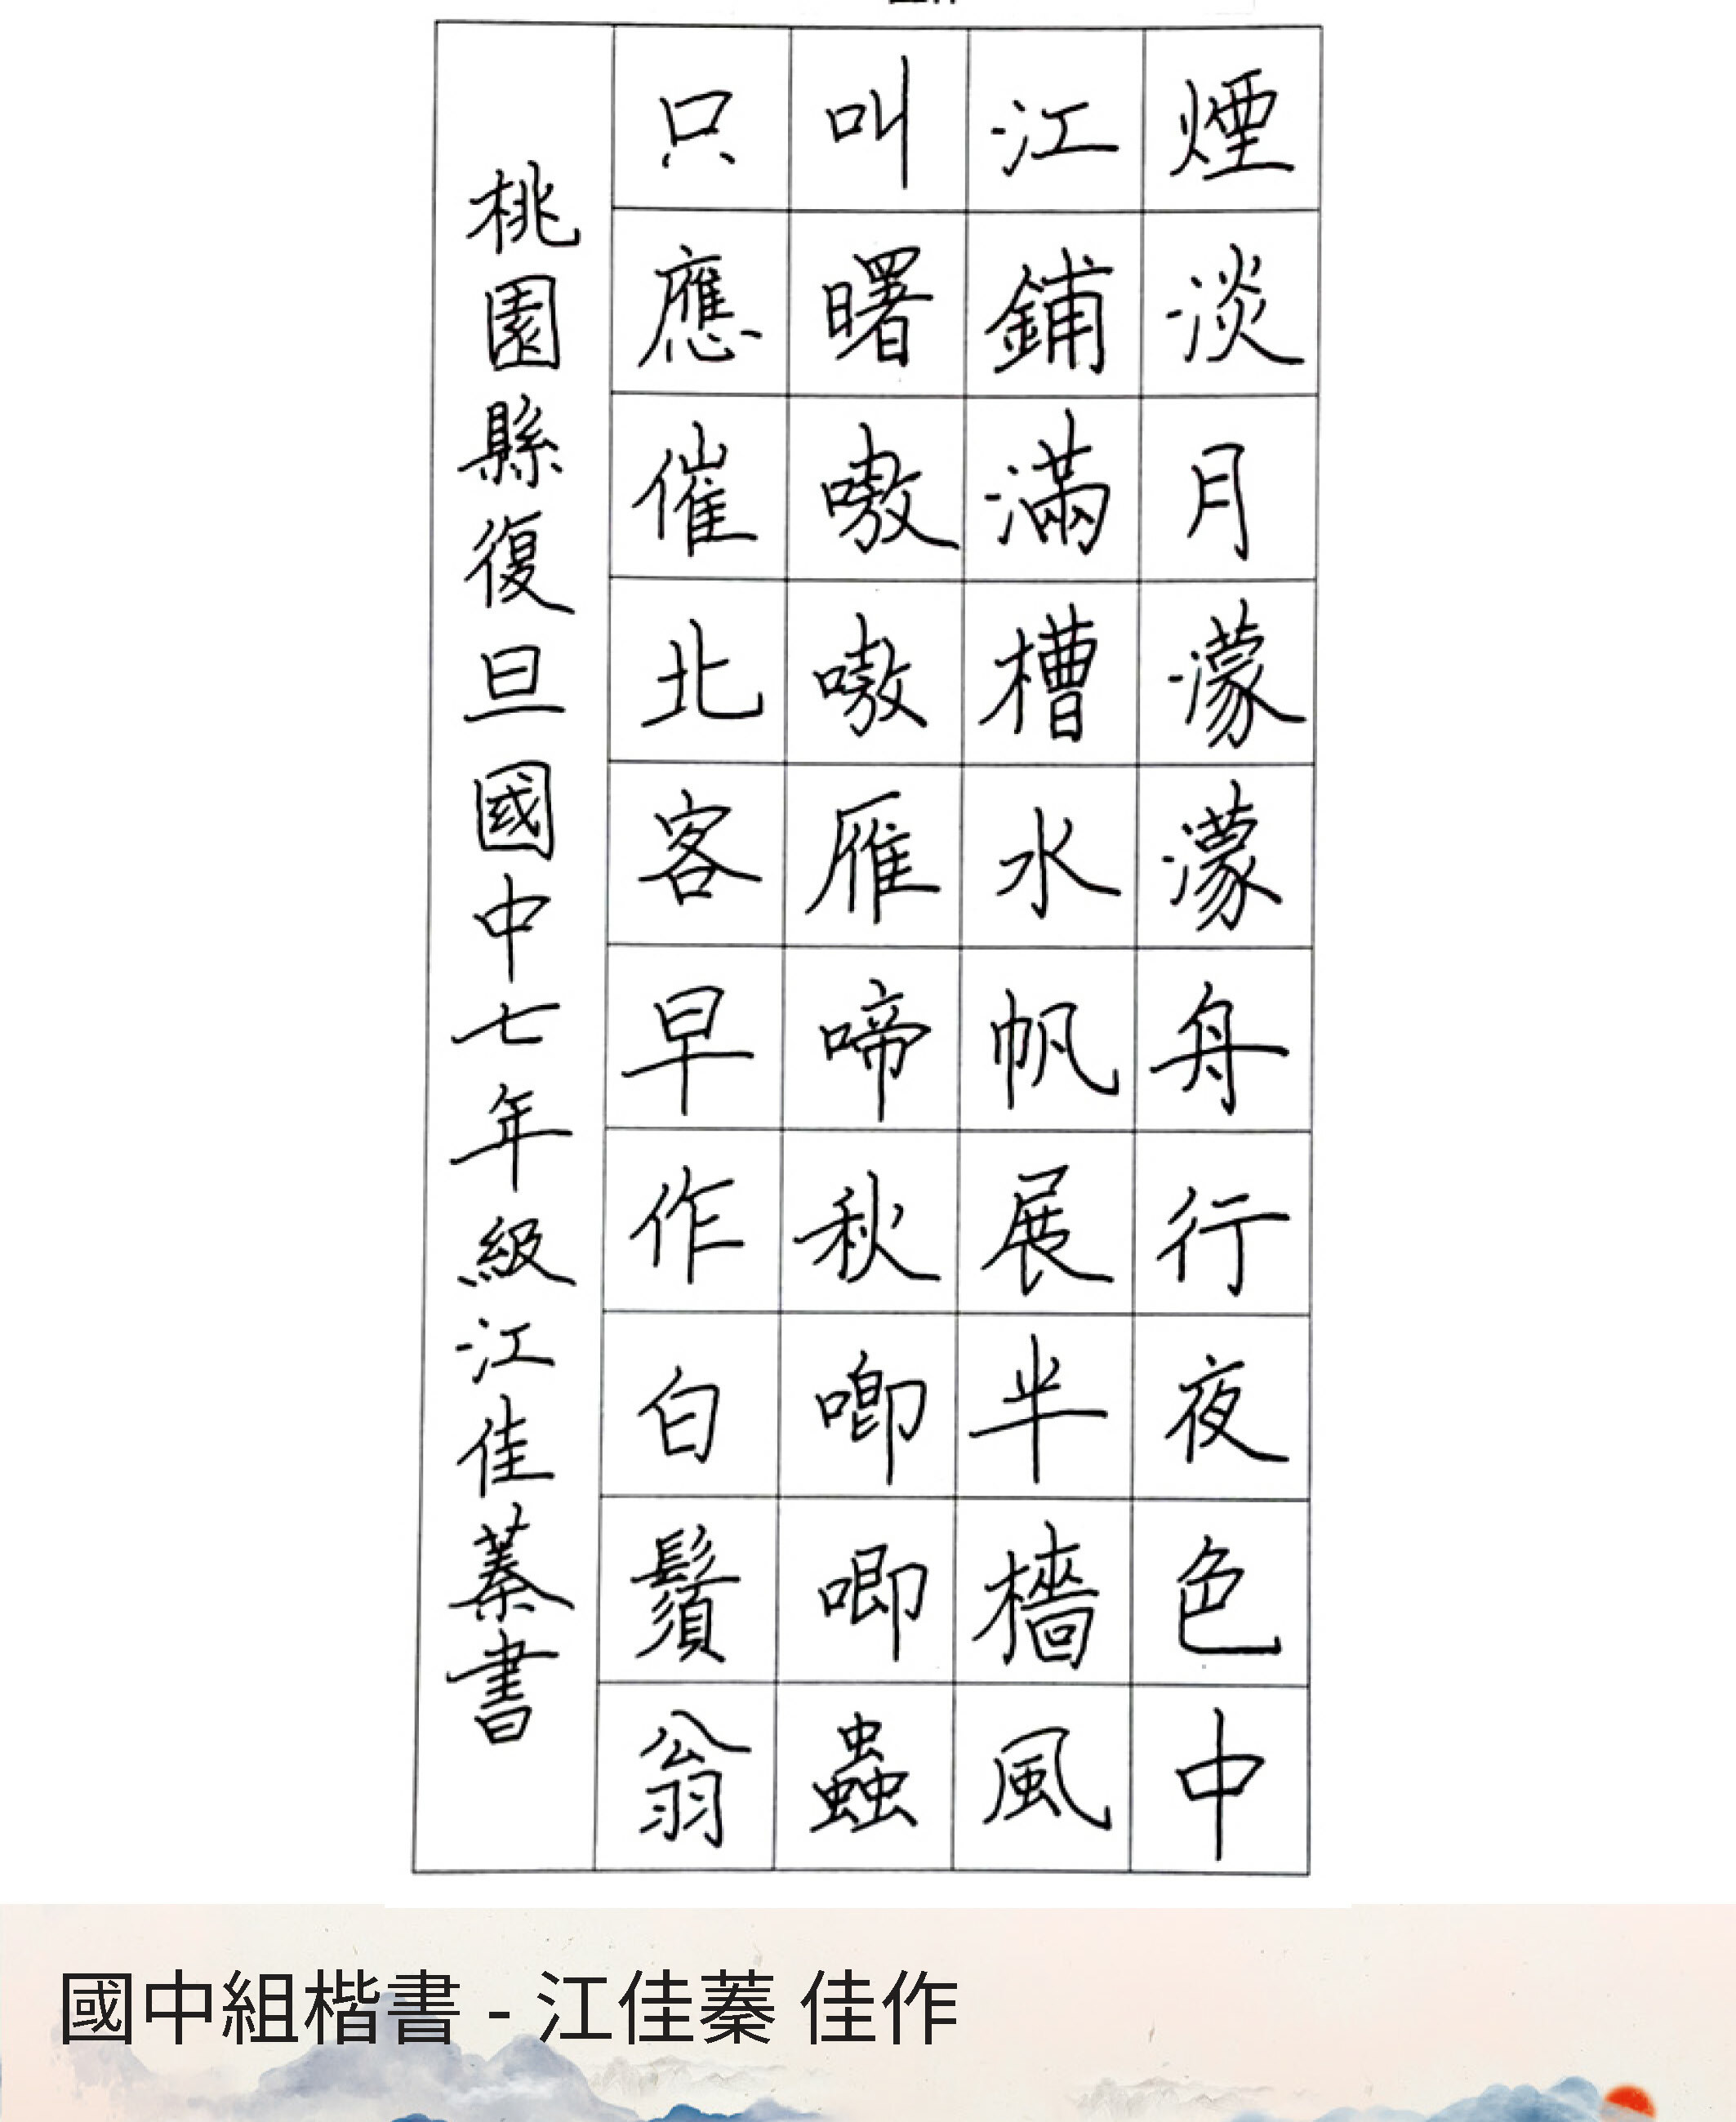 煙淡月濛濛舟行夜色中
江鋪滿槽水帆展半檣風
叫曙嗷嗷雁啼秋唧唧蟲
只應催北客早作白鬚翁
桃園縣復旦國中七年級江佳蓁書
國中組楷書 - 江佳蓁 佳作